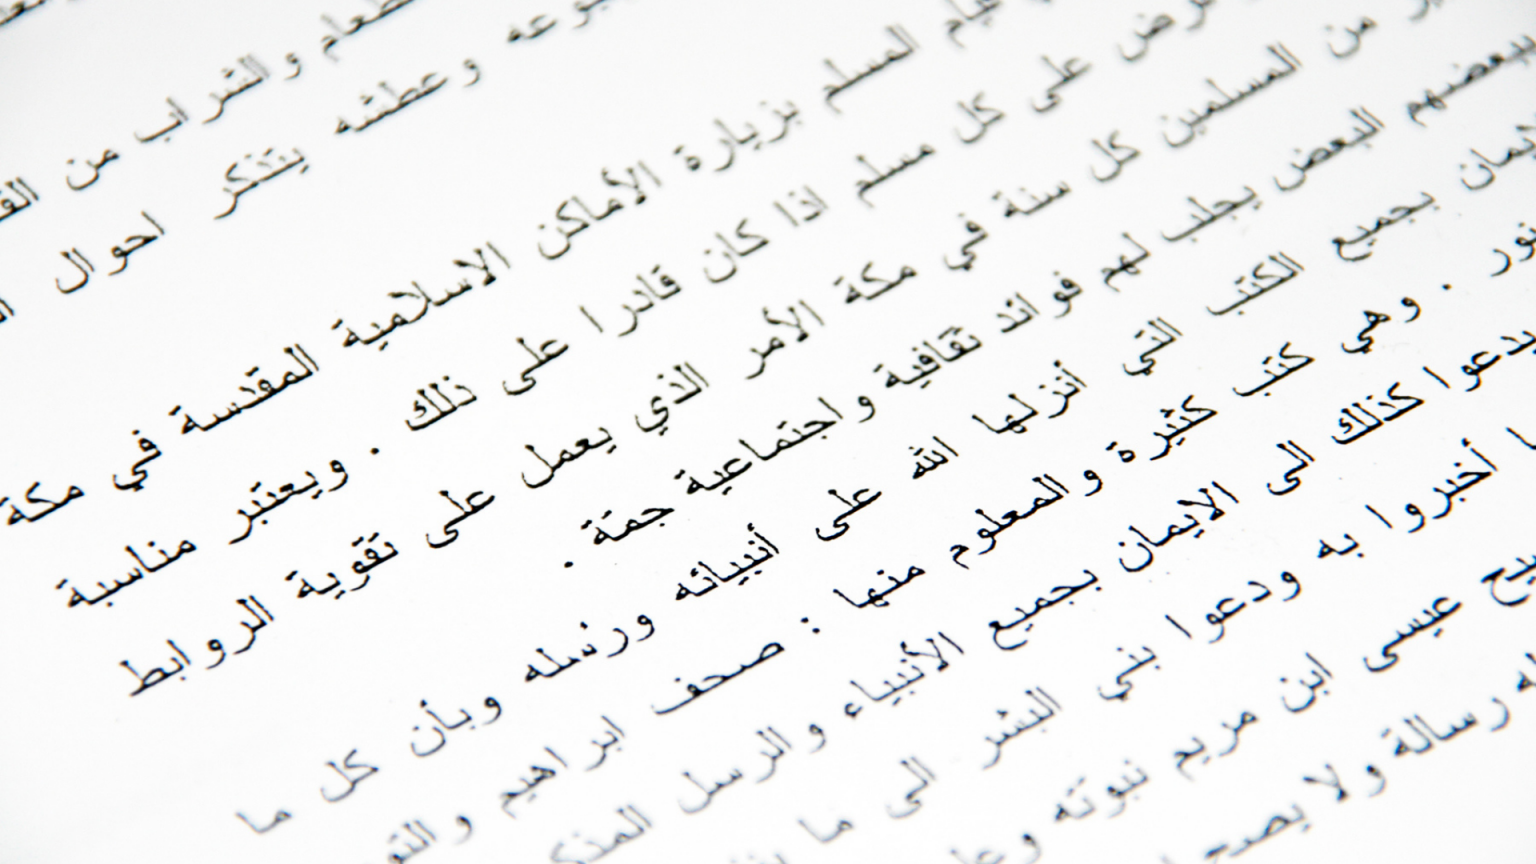 طعام والشراب من
وعطشه يتذكر احوال
قيام المسلم بزيارة الأماكن الاسلامية المقدسة في مكة
على كل مسلم اذا كان قادرا على ذلك . ويعتبر مناسبة
من المسلمين كل سنة في مكة الأمر الذي يعمل على تقوية الروابط
ببعضهم البعض يجلب لهم فوائد ثقافية واجتماعية جمّة .
بجميع الكتب التي أنزلها الله على أنبيائه ورسله وبأن كل ما
نور . وهي كتب كثيرة والمعلوم منها : صحف ابراهيم
يدعوا كذلك الى الايمان بجميع الأنبياء والرسل
أخبروا به ودعوا بني البشر الى ما
عيسى ابن مريم نبوته
رسالة ولا